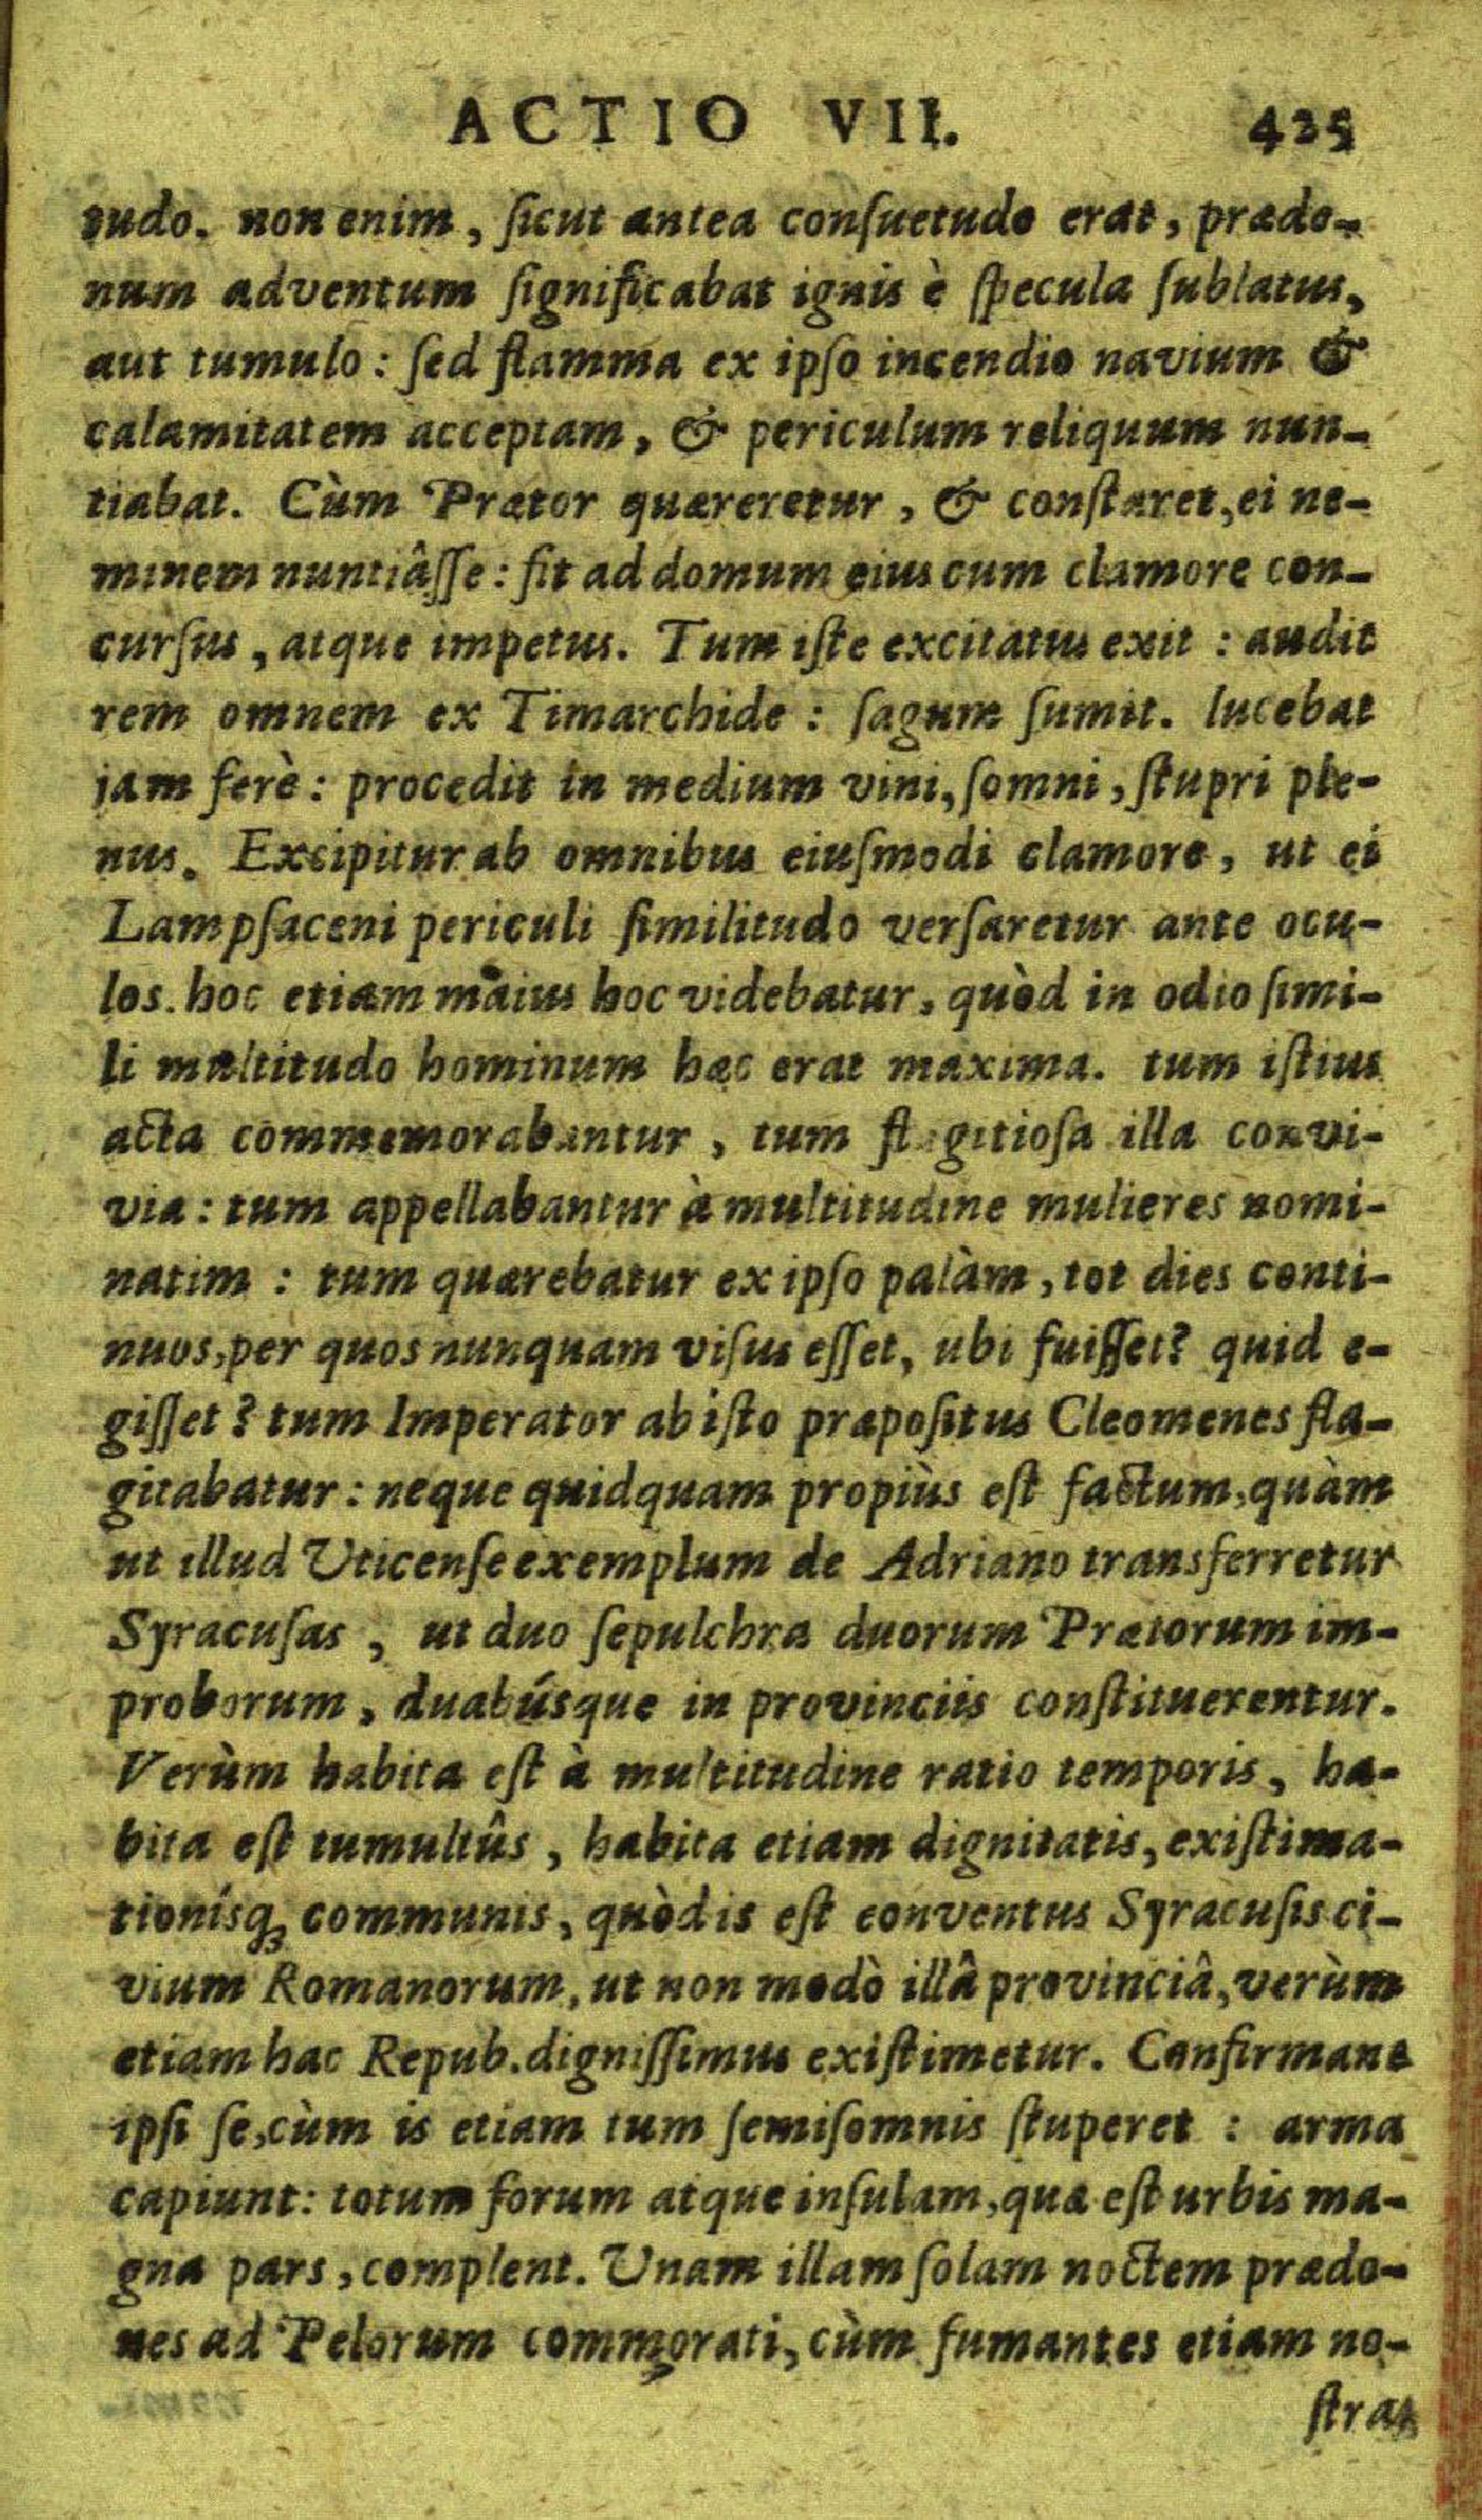 ACTIO VII. 425
tudo. non enim, ſicut antea conſuetudo erat, prædo-
num adventum ſignificabat ignis è ſpecula ſublatus,
aut tumulo: ſed flamma ex ipſo incendio navium &
calamitatem acceptam, & periculum reliquum nun-
tiabat. Cùm Prætor quæreretur, & conſtaret, ei ne-
minem nuntiâſſe: fit ad domum eius cum clamore con-
curſus, atque impetus. Tum iſte excitatus exit: audit
rem omnem ex Timarchide: ſagum ſumit. lucebat
jam ferè: procedit in medium vini, ſomni, ſtupri ple-
nus. Excipitur ab omnibus eiuſmodi clamore, ut ei
Lampſaceni periculi ſimilitudo verſaretur ante ocu-
los. hoc etiam maius hoc videbatur, quòd in odio ſimi-
li multitudo hominum hæc erat maxima. tum iſtius
acta commemorabantur, tum flagitioſa illa convi-
via: tum appellabantur à multitudine mulieres nomi-
natim: tum quærebatur ex ipſo palàm, tot dies conti-
nuos, per quos nunquam viſus eſſet, ubi fuiſſet? quid e-
giſſet? tum Imperator ab iſto præpoſitus Cleomenes fla-
gitabatur: neque quidquam propiùs eſt factum, quàm
ut illud Uticenſe exemplum de Adriano transferretur
Syracuſas, ut duo ſepulchra duorum Prætorum im-
proborum, duabúsque in provinciis conſtituerentur.
Verùm habita eſt à multitudine ratio temporis, ha-
bita eſt tumultûs, habita etiam dignitatis, exiſtima-
tionísq; communis, quòd is eſt conventus Syracuſis ci-
vium Romanorum, ut non modò illâ provinciâ, verùm
etiam hac Repub. digniſſimus exiſtimetur. Confirmant
ipſi ſe, cùm is etiam tum ſemiſomnis ſtuperet: arma
capiunt: totum forum atque inſulam, quæ eſt urbis ma-
gna pars, complent. Unam illam ſolam noctem prædo-
nes ad Pelorum commorati, cùm fumantes etiam no-
ſtras